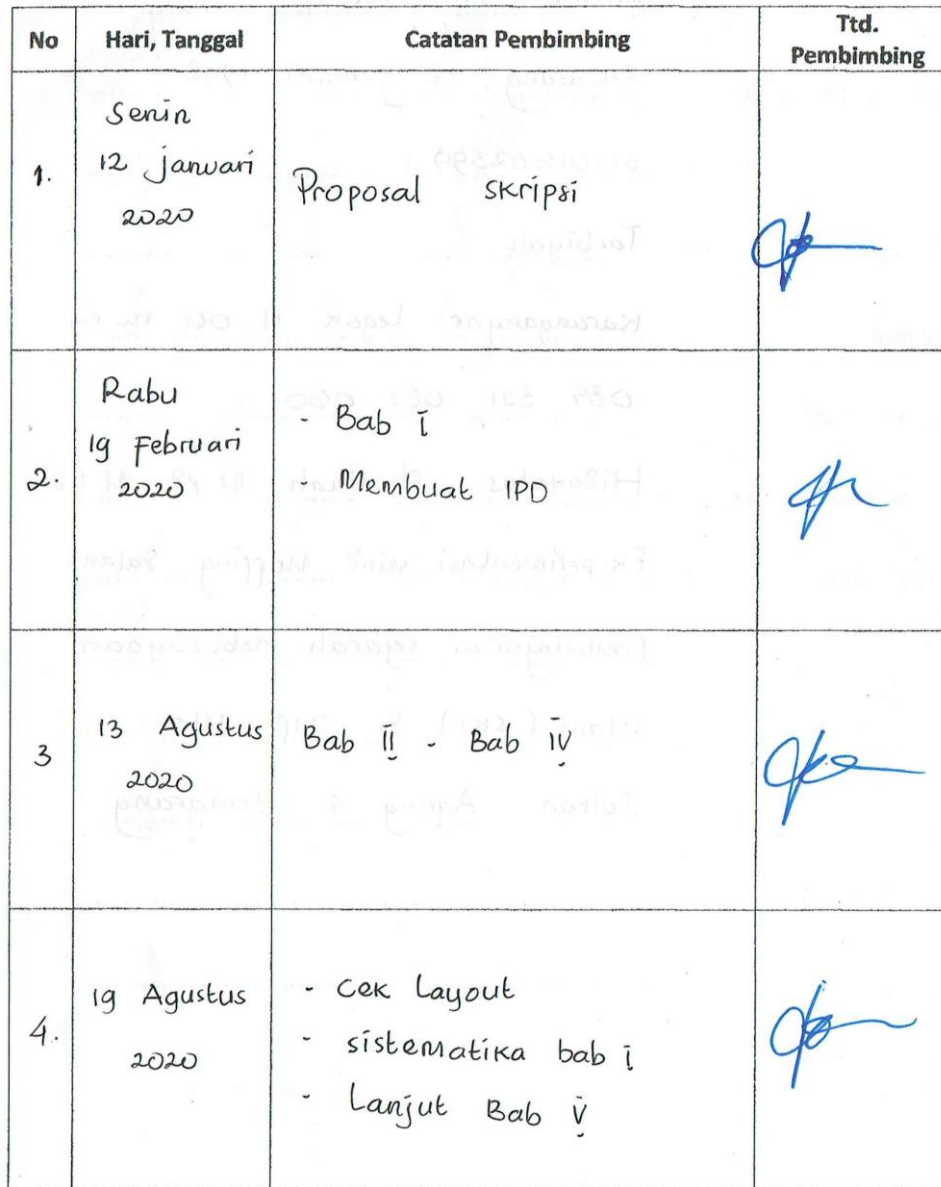 No Hari, Tanggal Catatan Pembimbing Ttd. Pembimbing
1. Senin
12 januari
2020
Proposal skripsi
2. Rabu
19 Februari
2020
- Bab I
- Membuat IPD
3 13 Agustus
2020
Bab II - Bab IV
4. 19 Agustus
2020
- Cek Layout
- sistematika bab I
- Lanjut Bab V